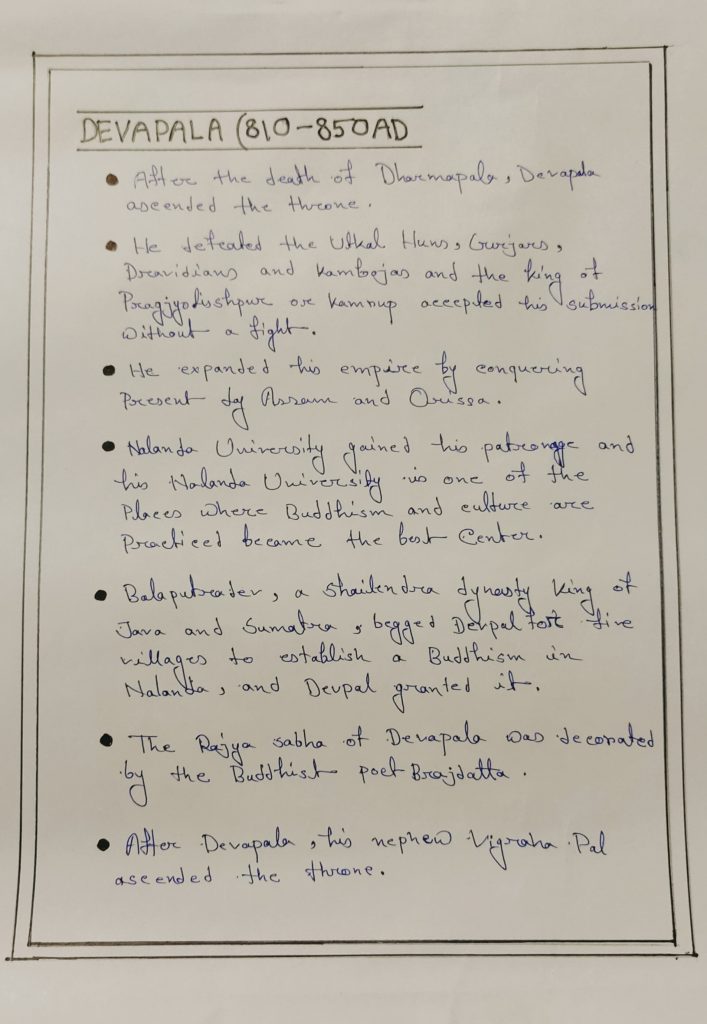 DEVAPALA (810-850AD
• After the death of Dharmapala, Devapala
ascended the throne.
• He defeated the Utkal Huns, Gurjars,
Dravidians and Kambojas and the king of
Pragjyodisshpur or Kamrup accepted his submission
without a fight.
• He expanded his empire by conquering
Present day Assam and Orissa.
• Nalanda University gained his patronage and
his Nalanda University is one of the
Places where Buddhism and culture are
Practiced became the best Center.
• Balaputradev, a Shailendra dynasty King of
Java and Sumatra, begged Devpal fort five
villages to establish a Buddhism in
Nalanda, and Devpal granted it.
• The Rajya sabha of Devapala was decorated
by the Buddhist poet Brajdatta.
• After Devapala, his nephew Vigraha Pal
ascended the throne.